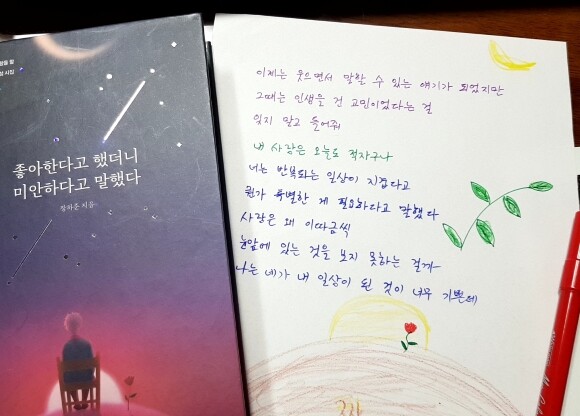 좋아한다고 했더니
미안하다고 말했다
지음
이제는 웃으면서 말할 수 있는 얘기가 되었지만
그때는 인생을 건 고민이었다는 걸
잊지 말고 들어줘
내 사랑은 오늘도 적자구나
너는 반복되는 일상이 지겹다고
뭔가 특별한 게 필요하다고 말했다
사랑은 왜 이따금씩
눈앞에 있는 것을 보지 못하는 걸까
나는 네가 내 일상이 된 것이 너무 기쁜데